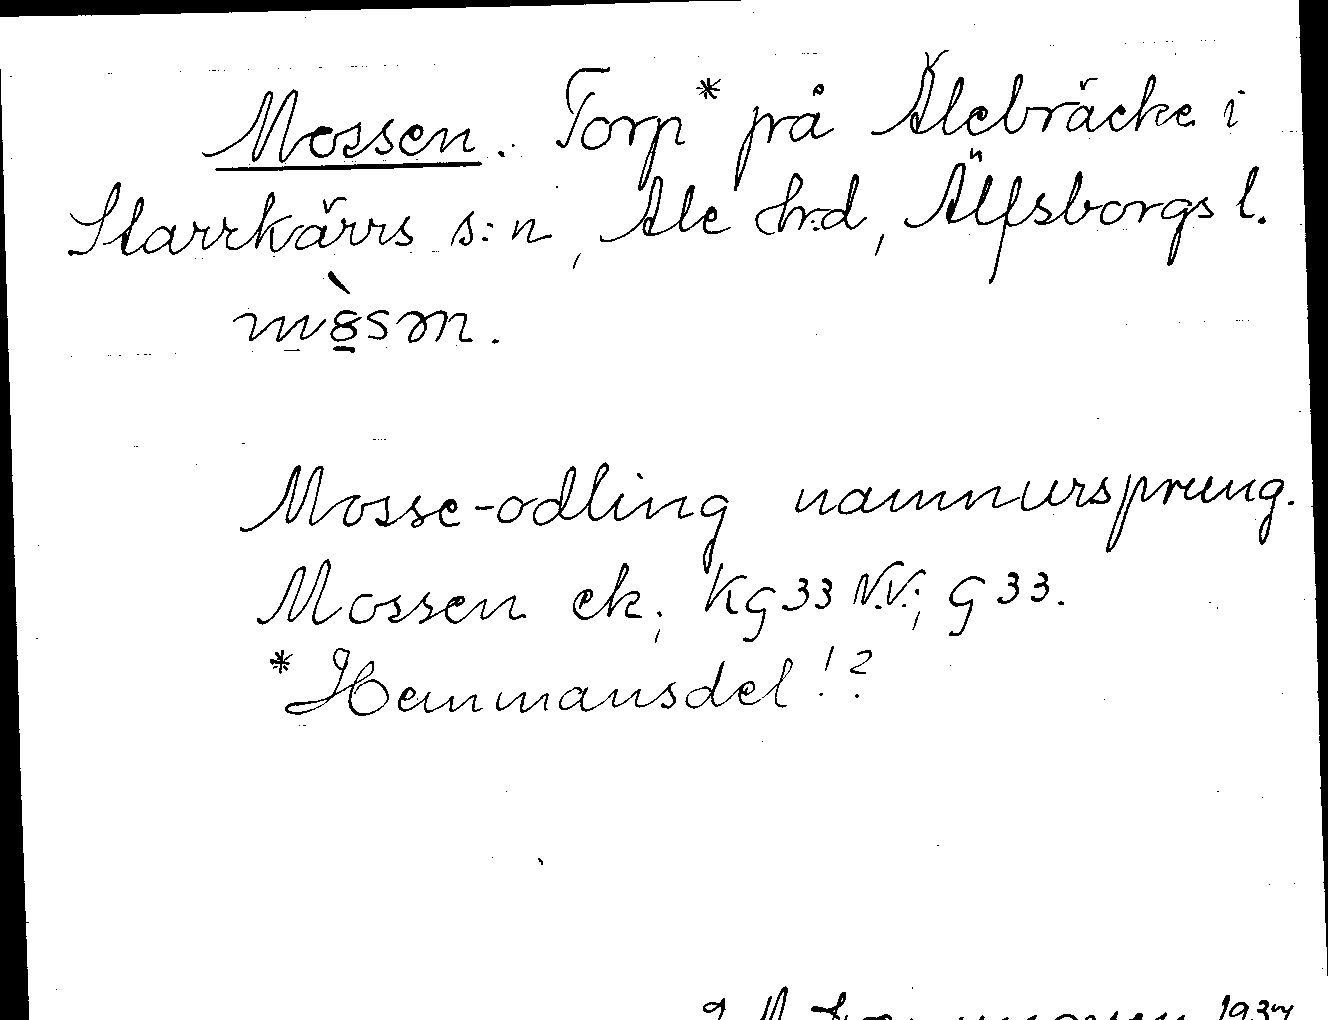 Mossen. Torp* på Alebräcke i
Starrkärrs s:n, Ale hrd, Älfsborgs l.
Mosse-odling namnursprung.
Mossen ek; Kg 33 N.V.; G 33.
*Hemmansdel!?
1937